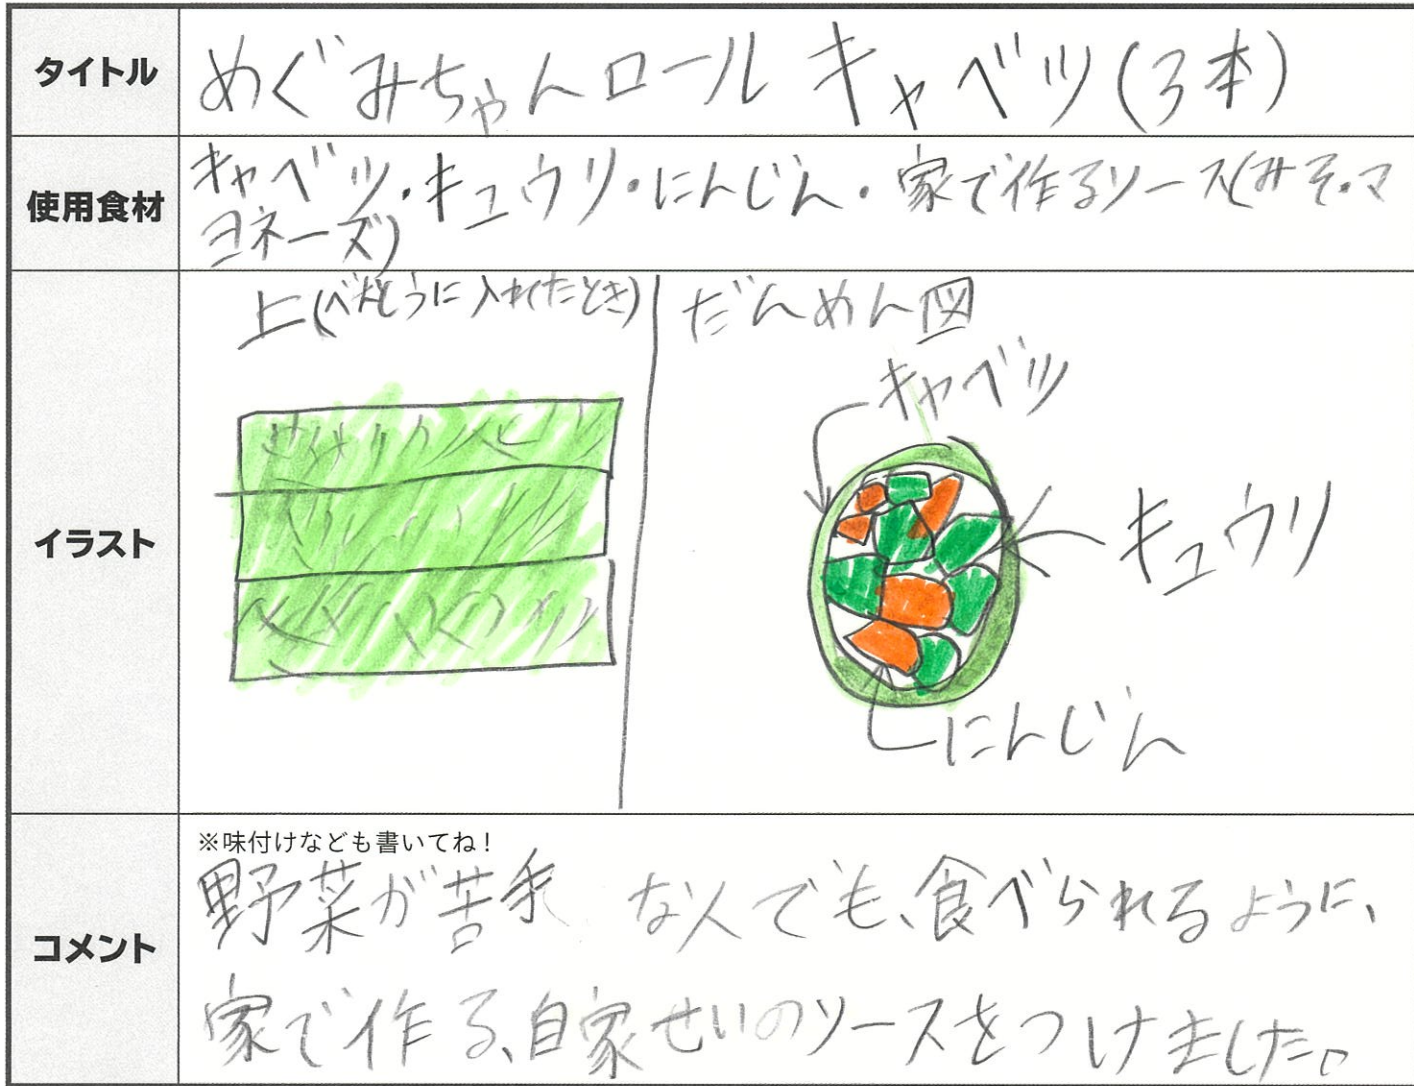 タイトル
めぐみちゃんロールキャベツ(3本)
使用食材
キャベツ・キュウリ・にんじん・家で作るソース(みそ・マ
ヨネーズ)
イラスト
上(べんとうに入れたとき)
だんめん図
キャベツ
キュウリ
にんじん
コメント
※味付けなども書いてね!
野菜が苦手な人でも、食べられるように、
家で作る、自家せいのソースをつけました。